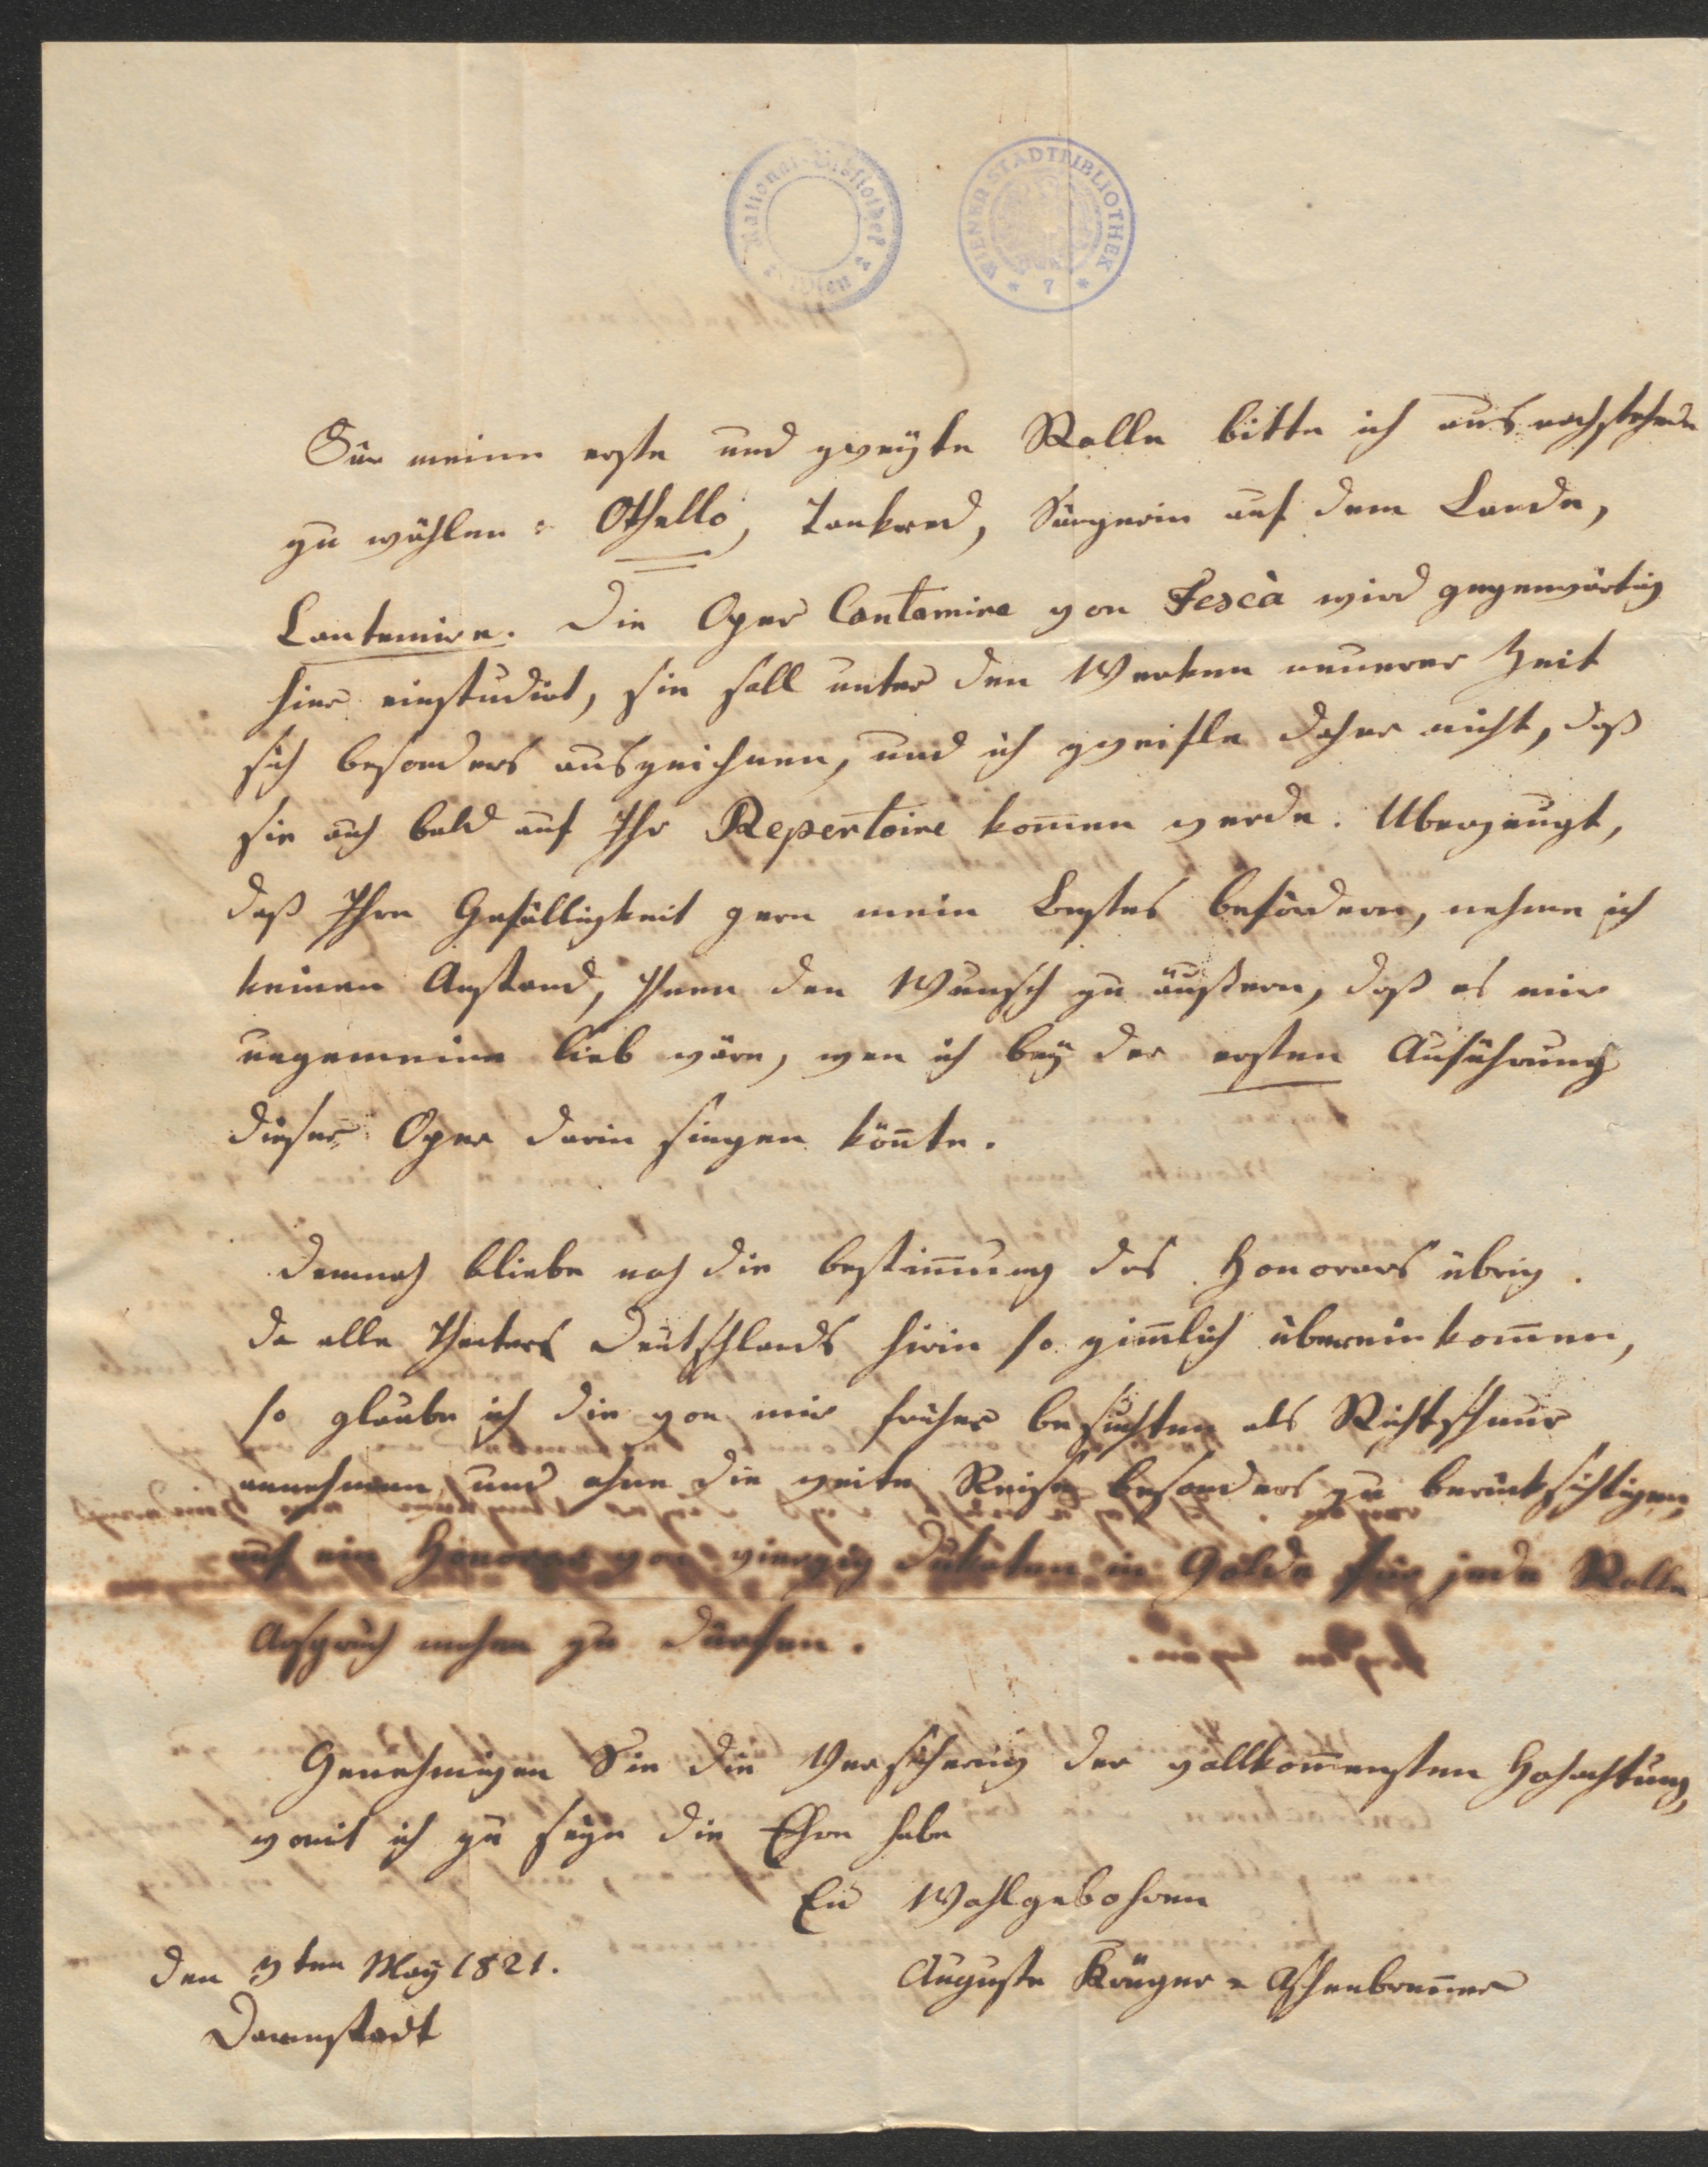 National-Bibliothek
Wien
WIENER STADTBIBLIOTHEK
* 7 *
Für meine erste und zweyte Rolle bitte ich aus nachstehende
zu wählen: Othello, Tankred, Sängerin auf dem Lande,
Cantemire. Die Oper Cantemire von Fesca wird gegenwärtig
hier einstudirt, sie soll unter den Werken neuerer Zeit
sich besonders auszeichnen, und ich zweifle daher nicht, daß
sie auch bald auf Ihr Repertoire kom̄en werde. Überzeugt,
daß Ihre Gefälligkeit gern mein Bestes befördern, nehme ich
keinen Anstand, Ihnen den Wunsch zu äußern, daß es mir
ungemeine lieb wäre, wen ich bey der ersten Auführung
dieser Oper darin singen kön̄te.
Demnach bliebe noch die bestim̄ung des Honorars übrig.
Da alle Theaters Deutschlands hirin so zim̄lich übereinkom̄en,
so glaube ich die von mir früher besuchten als Richtschnur
annehmen und ohne die weite Reise besonders zu berücksichtigen,
auf ein Honorar von vierzig Dukaten in Golde für jede Rolle
Anspruch machen zu dürfen.
Genehmigen Sie die Versicherung der vollkom̄ensten Hochachtung,
womit ich zu seyn die Ehre habe
Eu Wohlgebohren
den 9ten May 1821.
Auguste Krüger = Aschenbren̄er
Darmstadt